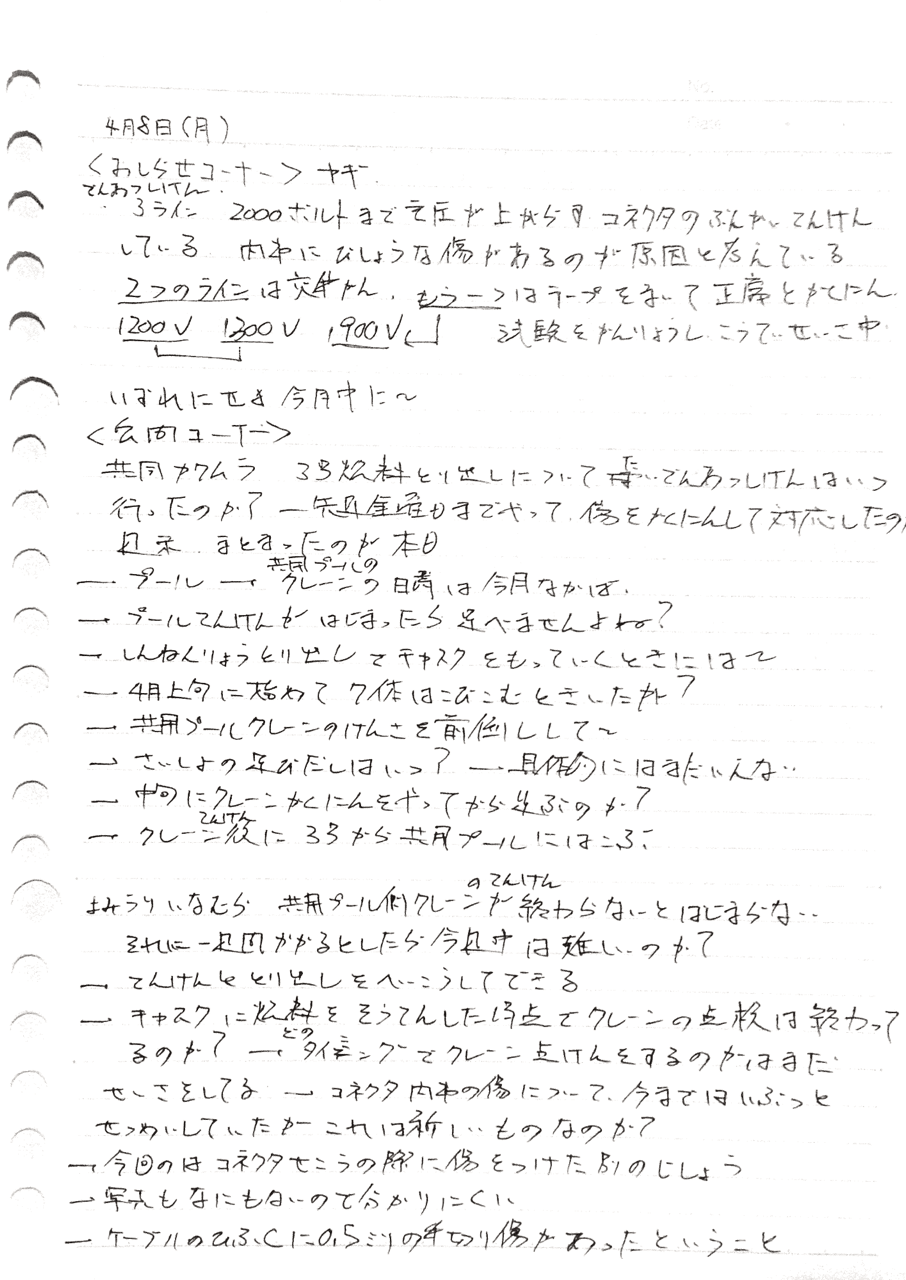 4月8日(月)
<おしらせコーナー> ヤギ
でんあつしけん
・3ライン 2000ボルトまで 圧が上がらず コネクタのぶんかいてんけん
している 内部にびしょうな傷があるのが原因と考えている
2つのラインは交換かん、もう一つはテープをまいて正常とかくにん
1200V 1300V 1900V 試験をかんりょうし、こうていせいさ中
いずれにせよ今月中に〜
<会問コーナー>
共同カワムラ 3号燃料とり出しについて たいでんあつしけんはいつ
行ったのか? 金曜日までやって、傷をかくにんして対応したの
まとまったのが本日
― プール → 共用プールの クレーンの日時は今月なかば、
→ プールてんけんがはじまったら運べませんよね?
→ しんねんりょうとり出しでキャスクをもっていくときには〜
→ 4月上旬に始めて 7体はこびこむときいたが?
→ 共用プールクレーンのけんさを前倒しして〜
→ さいしょの運びだしはいつ? → 具体的にはまだいえない
→ 中旬にクレーンかくにんをやってから運ぶのか?
→ クレーンてんけん後に33から共用プールにはこぶ
よみうりいなむら 共用プール側クレーンのてんけんが終わらないとはじまらない
それに一週間かかるとしたら今週中は難しいのか?
→ てんけんととり出しをへいこうしてできる
→ キャスクに燃料をそうてんした時点でクレーンの点検は終わって
るのか? → どのタイミングでクレーン点けんをするのかはまだ
せいさをしてる → コネクタ内部の傷について、今まではいぶつと
せつめいしていたが これは新しいものなのか?
→ 今回のはコネクタせこうの際に傷をつけた別のじしょう
→ 写真もなにもないので分かりにくい
→ ケーブルのひふくに0.5ミリの切り傷があったということ